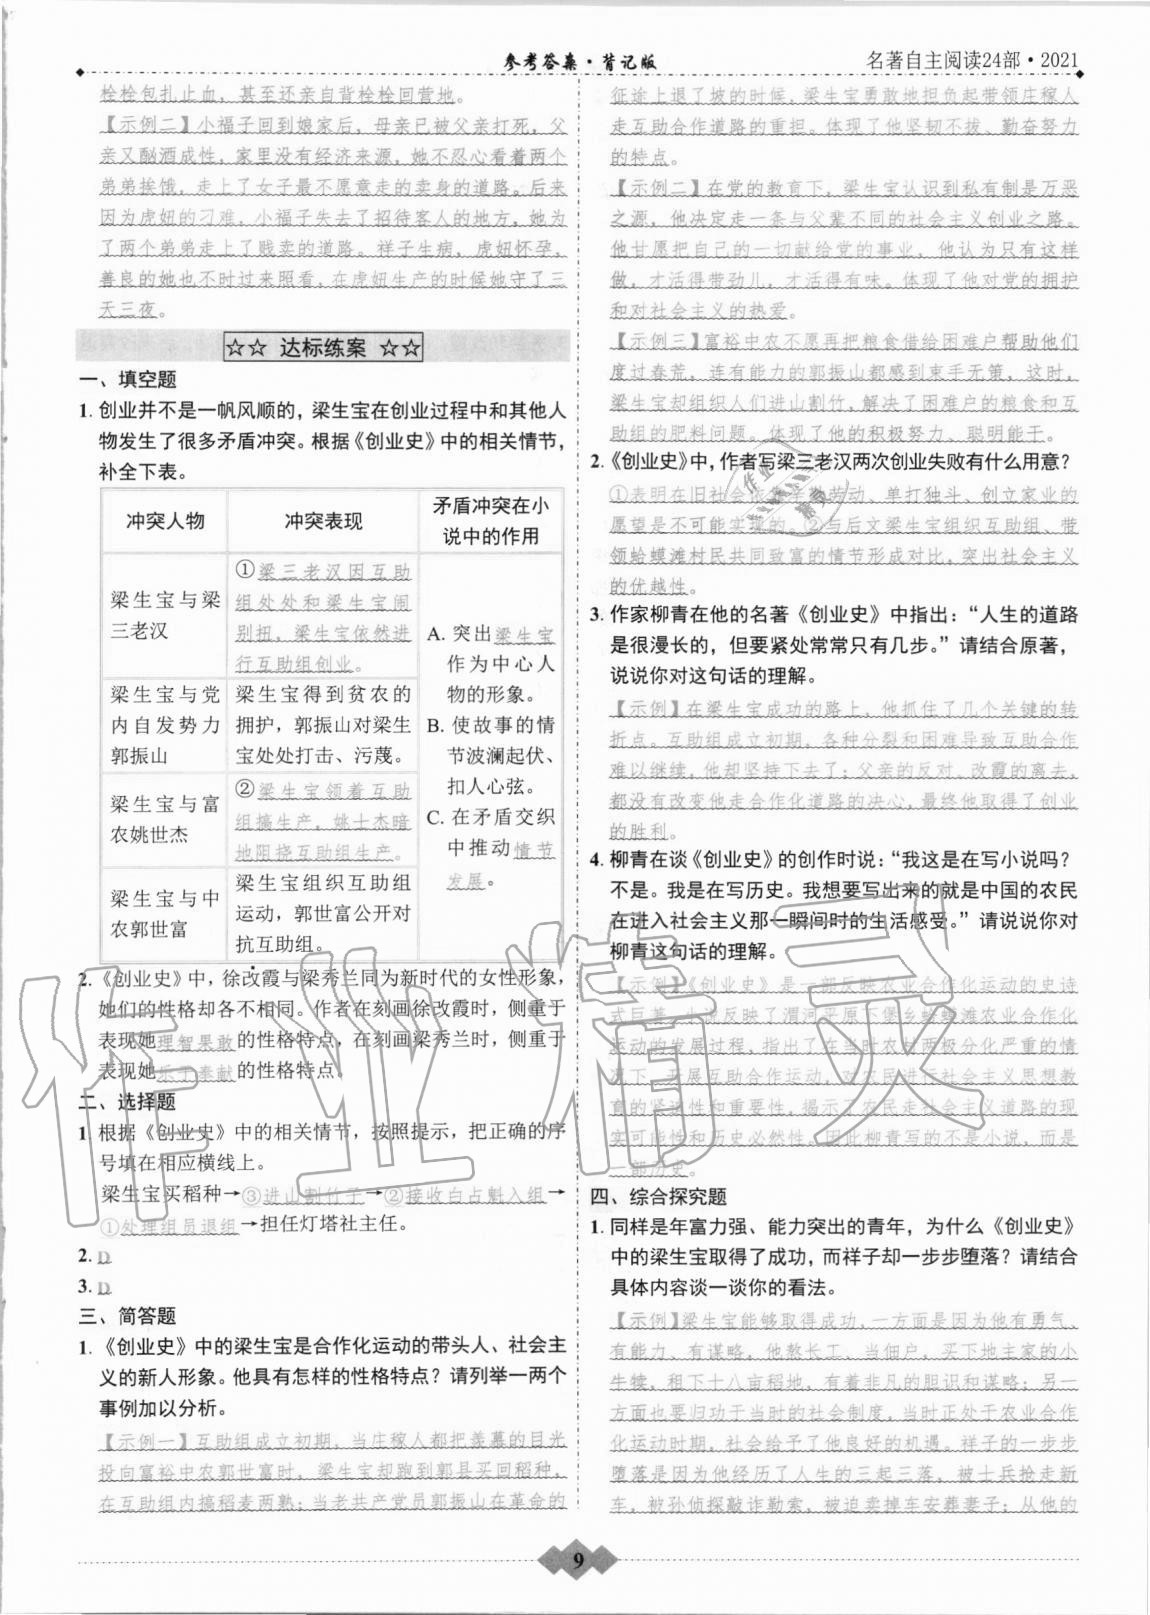 参考答案·背记版
名著自主阅读24部·2021
栓栓包扎止血，甚至还亲自背栓栓回营地。
【示例二】小福子回到娘家后，母亲已被父亲打死，父
亲又酗酒成性，家里没有经济来源，她不忍心看着两个
弟弟挨饿，走上了女子最不愿意走的卖身的道路。后来
因为虎妞的刁难，小福子失去了招待客人的地方，她为
了两个弟弟走上了贱卖的道路。祥子生病，虎妞怀孕，
善良的她也不时过来照看，在虎妞生产的时候她守了三
天三夜。
☆☆ 达标练案 ☆☆
一、填空题
1. 创业并不是一帆风顺的，梁生宝在创业过程中和其他人
物发生了很多矛盾冲突。根据《创业史》中的相关情节，
补全下表。
冲突人物
冲突表现
矛盾冲突在小
说中的作用
梁生宝与梁
三老汉
①梁三老汉因互助
组处处和梁生宝闹
别扭，梁生宝依然进
行互助组创业。
梁生宝与党
内自发势力
郭振山
梁生宝得到贫农的
拥护，郭振山对梁生
宝处处打击、污蔑。
梁生宝与富
农姚世杰
②梁生宝领着互助
组搞生产，姚士杰暗
地阻挠互助组生产。
梁生宝与中
农郭世富
梁生宝组织互助组
运动，郭世富公开对
抗互助组。
A. 突出梁生宝
作为中心人
物的形象。
B. 使故事的情
节波澜起伏、
扣人心弦。
C. 在矛盾交织
中推动情节
发展。
2. 《创业史》中，徐改霞与梁秀兰同为新时代的女性形象，
她们的性格却各不相同。作者在刻画徐改霞时，侧重于
表现她理智果敢的性格特点，在刻画梁秀兰时，侧重于
表现她乐于奉献的性格特点。
二、选择题
1. 根据《创业史》中的相关情节，按照提示，把正确的序
号填在相应横线上。
梁生宝买稻种→③进山割竹子→②接收白占魁入组→
①处理组员退组→担任灯塔社主任。
2. D
3. D
三、简答题
1. 《创业史》中的梁生宝是合作化运动的带头人、社会主
义的新人形象。他具有怎样的性格特点？请列举一两个
事例加以分析。
【示例一】互助组成立初期，当庄稼人都把羡慕的目光
投向富裕中农郭世富时，梁生宝却跑到郭县买回稻种，
在互助组内搞稻麦两熟；当老共产党员郭振山在革命的
征途上退了坡的时候，梁生宝勇敢地担负起带领庄稼人
走互助合作道路的重担。体现了他坚韧不拔、勤奋努力
的特点。
【示例二】在党的教育下，梁生宝认识到私有制是万恶
之源，他决定走一条与父辈不同的社会主义创业之路。
他甘愿把自己的一切献给党的事业，他认为只有这样
做，才活得带劲儿，才活得有味。体现了他对党的拥护
和对社会主义的热爱。
【示例三】富裕中农不愿再把粮食借给困难户帮助他们
度过春荒，连有能力的郭振山都感到束手无策，这时，
梁生宝却组织人们进山割竹，解决了困难户的粮食和互
助组的肥料问题。体现了他的积极努力、聪明能干。
2. 《创业史》中，作者写梁三老汉两次创业失败有什么用意？
①表明在旧社会依靠辛勤劳动、单打独斗、创立家业的
愿望是不可能实现的。②与后文梁生宝组织互助组、带
领蛤蟆滩村民共同致富的情节形成对比，突出社会主义
的优越性。
3. 作家柳青在他的名著《创业史》中指出：“人生的道路
是很漫长的，但要紧处常常只有几步。”请结合原著，
说说你对这句话的理解。
【示例】在梁生宝成功的路上，他抓住了几个关键的转
折点。互助组成立初期，各种分裂和困难导致互助合作
难以继续，他却坚持下去了；父亲的反对、改霞的离去，
都没有改变他走合作化道路的决心，最终他取得了创业
的胜利。
4. 柳青在谈《创业史》的创作时说：“我这是在写小说吗？
不是。我是在写历史。我想要写出来的就是中国的农民
在进入社会主义那一瞬间时的生活感受。”请说说你对
柳青这句话的理解。
【示例】《创业史》是一部反映农业合作化运动的史诗
式巨著，小说反映了渭河平原下堡乡蛤蟆滩农业合作化
运动的发展过程，指出了在当时农村两极分化严重的情
况下，开展互助合作运动，对农民进行社会主义思想教
育的紧迫性和重要性，揭示了农民走社会主义道路的现
实可能性和历史必然性。因此柳青写的不是小说，而是
一部历史。
四、综合探究题
1. 同样是年富力强、能力突出的青年，为什么《创业史》
中的梁生宝取得了成功，而祥子却一步步堕落？请结合
具体内容谈一谈你的看法。
【示例】梁生宝能够取得成功，一方面是因为他有勇气、
有能力、有谋略，他熬长工、当佃户，买下地主家的小
牛犊，租下十八亩稻地，有着非凡的胆识和谋略；另一
方面也要归功于当时的社会制度，当时正处于农业合作
化运动时期，社会给予了他良好的机遇。祥子的一步步
堕落是因为他经历了人生的三起三落，被士兵抢走新
车，被孙侦探敲诈勒索，被迫卖掉车安葬妻子；从他的
9
作业精灵